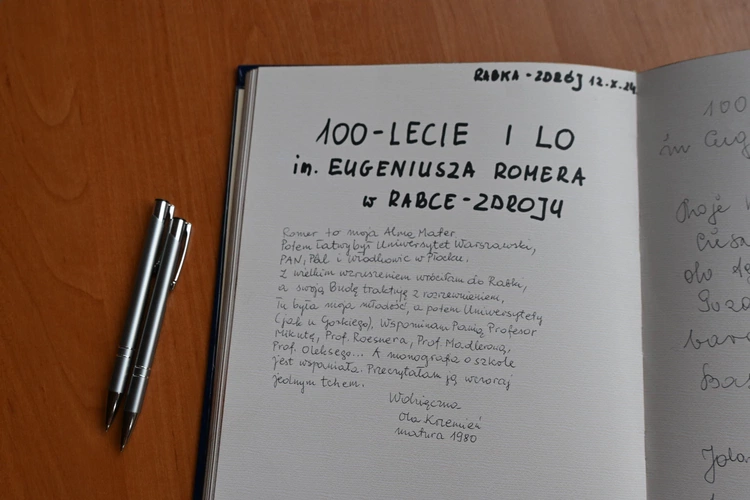 RABKA-ZDRÓJ 12.X.24
100-LECIE I LO
im. EUGENIUSZA ROMERA
w RABCE-ZDROJU
Romer to moja Alma Mater
Potem łatwy był Uniwersytet Warszawski,
PAN, i Włodkowic w Płocku.
Z wielkim wzruszeniem wróciłam do Rabki,
a swoją Budę traktuję z rozrzewnieniem,
Tu była moja młodość, a potem Uniwersytety
(jak u Gorkiego), Wspominam Panią Profesor
Mikutę, Prof. Roesnera, Prof. Madlerową,
Prof. Oleksego... A monografia o szkole
jest wspaniała. Przeczytałam ją wczoraj
jednym tchem.
Wdzięczna
Ola Krzemień
matura 1980
100
im Eug